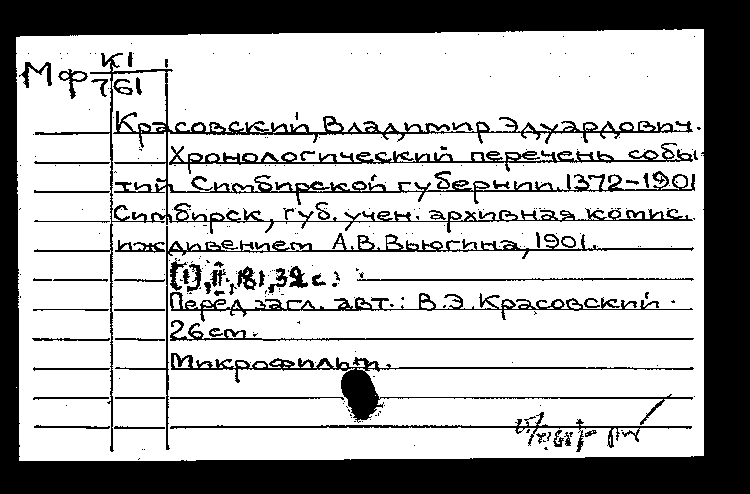 Мф К1
761
Красовский, Владимир Эдуардович.
Хронологический перечень собы-
тий Симбирской губернии. 1372-1901
Симбирск, губ. учен. архивная комис.
иждивением А.В. Вьюгина, 1901.
[1], II, 181, 32 с.
Перед загл. авт.: В.Э. Красовский.
26 см.
Микрофильм.